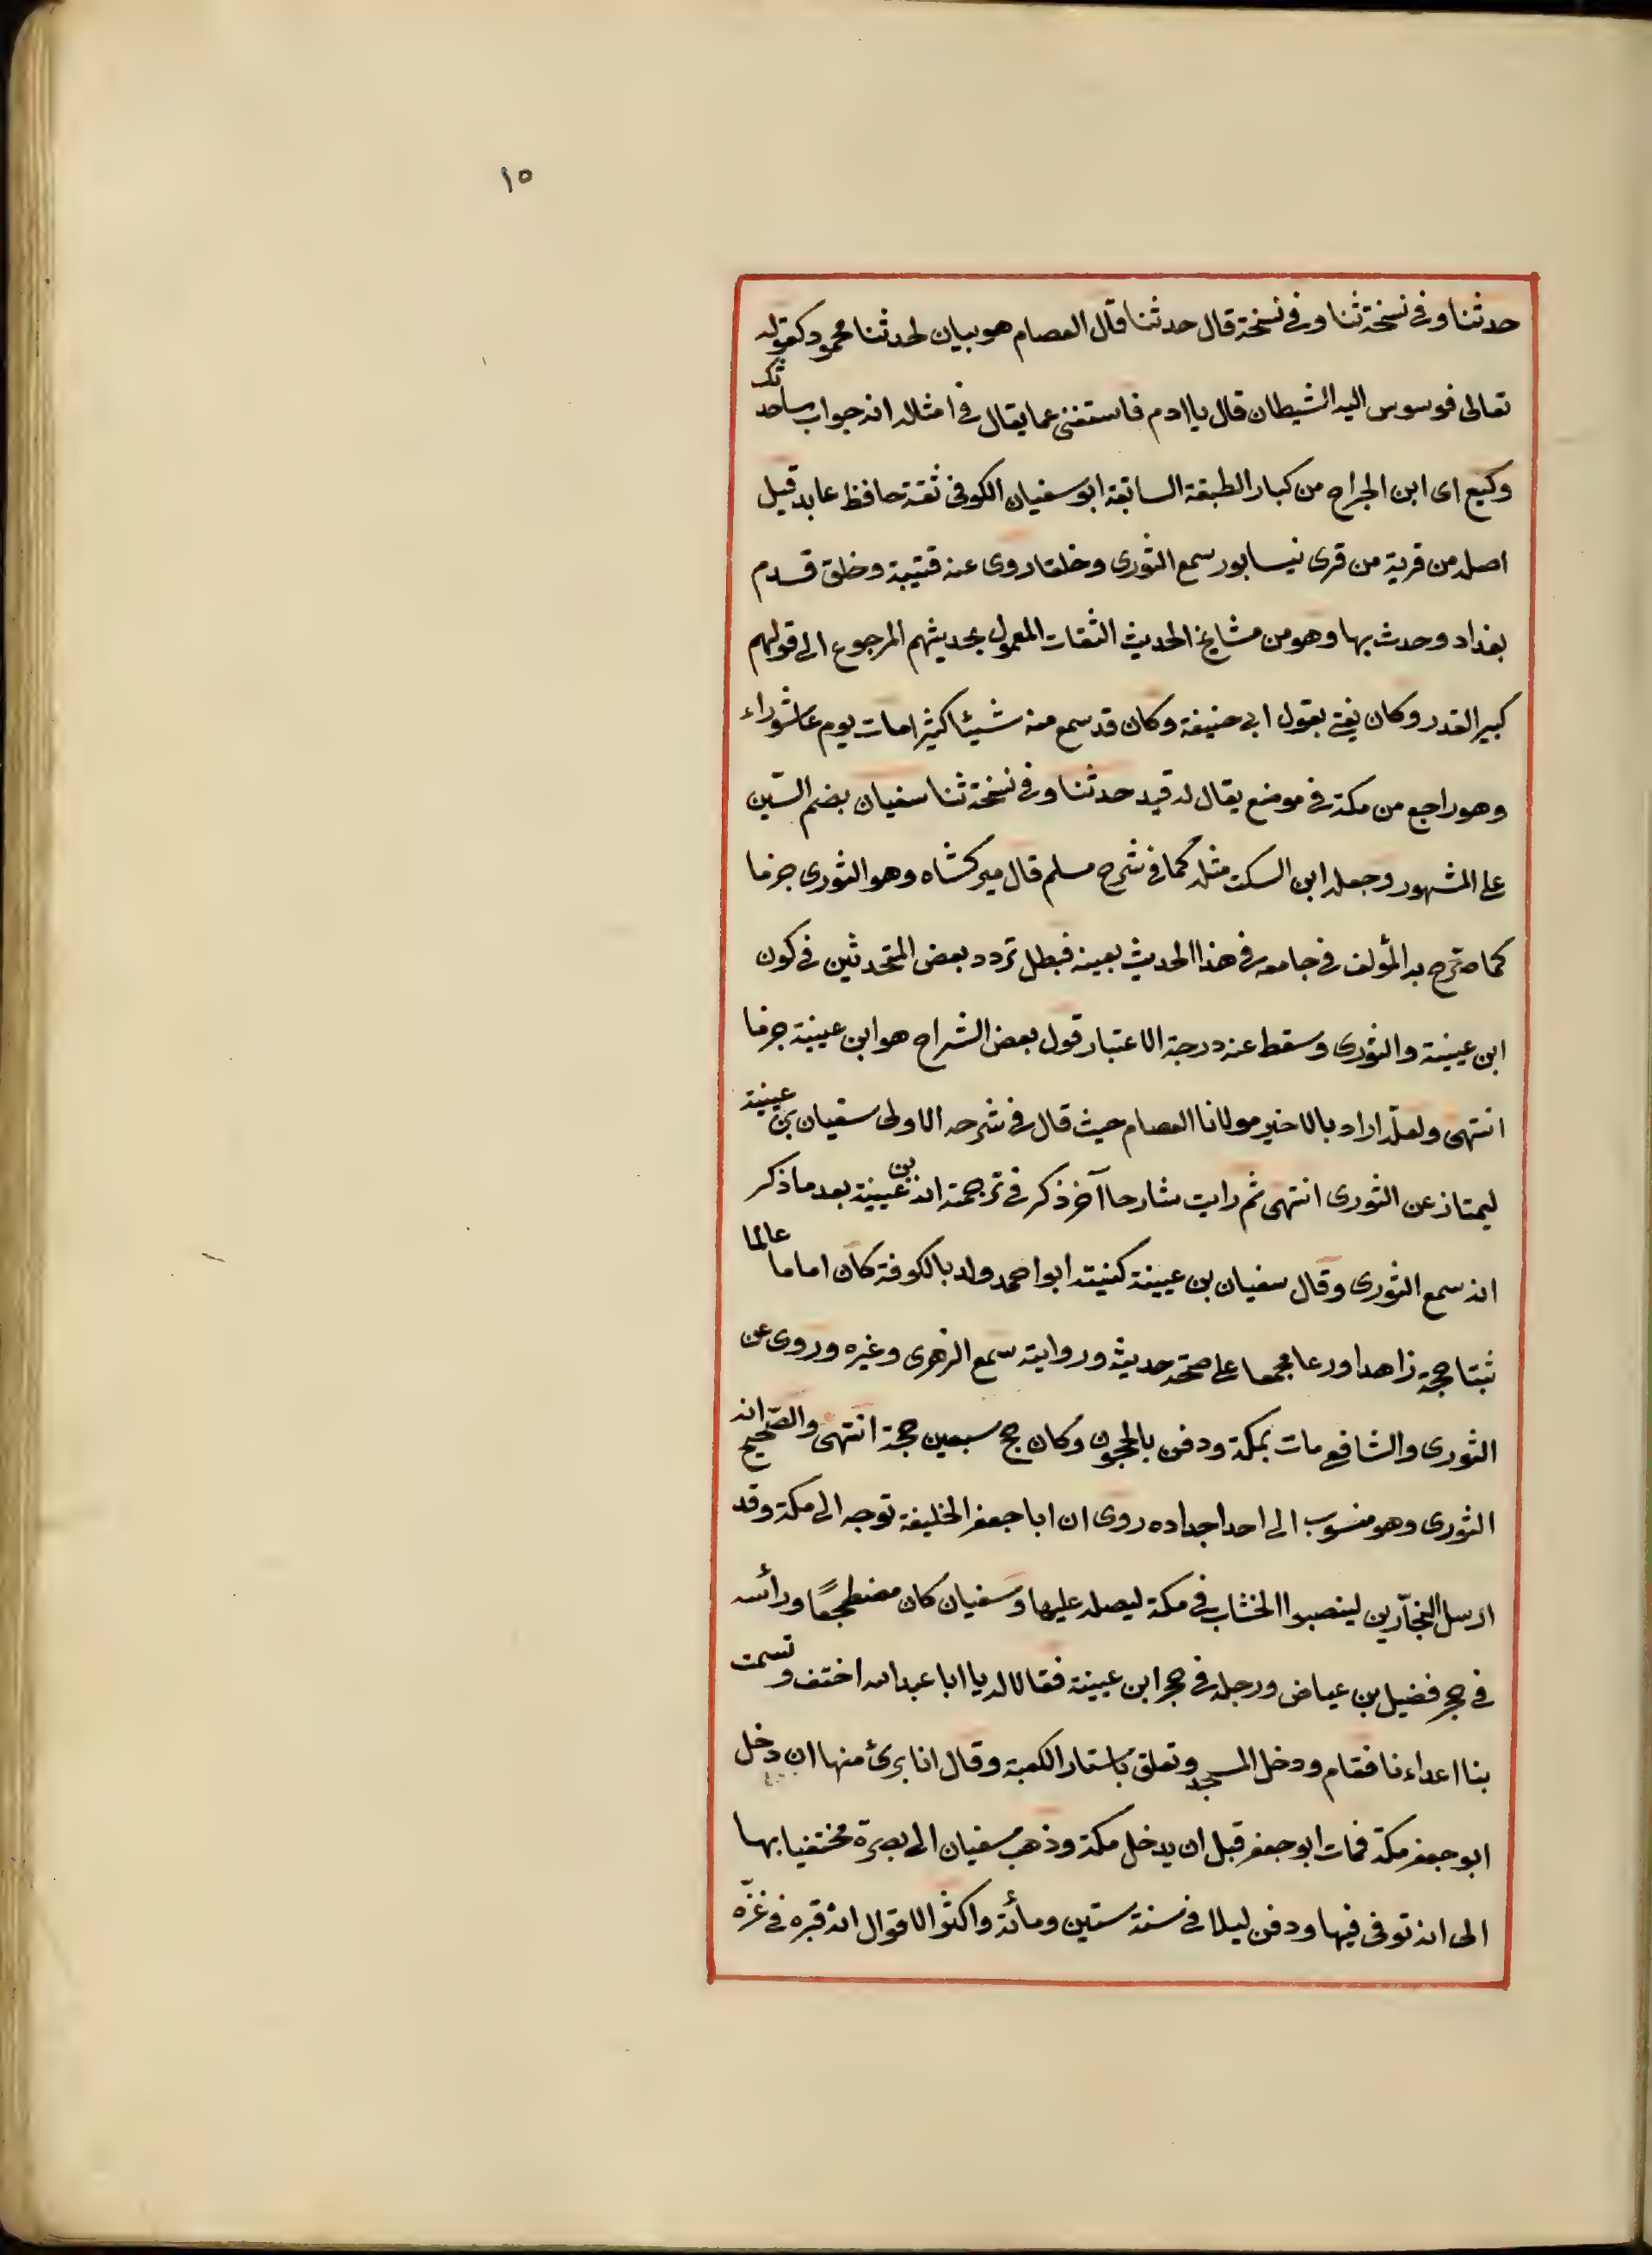 ١٥
حدثنا وفى نسخة ثنا وفى نسخة قال حدثنا قال العصام هو بيان لحدثنا محمود كقوله
تعالى فوسوس اليه الشيطان قال ياادم فاستغنى عما يقال فى امثاله انه جواب سائل حد
وكيع اى ابن الجراح من كبار الطبقة السابقة ابو سفيان الكوفى ثقة حافظ عابد قيل
اصله من قرية من قرى نيسابور سمع الثورى وخلقا روى عنه قتيبة وخلق قدم
بغداد وحدث بها وهو من مشايخ الحديث الثقات المعمول بحديثهم المرجوع الى قولهم
كبير القدر وكان يفتى بقول ابى حنيفة وكان قد سمع منه شيئا كثيرا مات يوم عاشوراء
وهو راجع من مكة فى موضع يقال له قيد حدثنا وفى نسخة ثنا سفيان بضم السّين
على المشهور وجعله ابن السكت مثله كما فى شرح مسلم قال ميركشاه وهو الثورى جزما
كما صّرح به المؤلف فى جامعه فى هذا الحديث بعينه فبطل تردد بعض المتحدثين فى كون
ابن عيينة والثورى وسقط عنه درجة الاعتبار قول بعض الشراح هو ابن عيينة جزما
انتهى ولعلّه اراد بالاخير مولانا العصام حيث قال فى شرحه الاولى سفيان بن عيينة
ليمتاز عن الثورى انتهى ثم رايت شارحا آخر ذكر فى ترجمة انه بن عيينة بعد ما ذكر
انه سمع الثورى وقال سفيان بن عيينة كنيته ابو احمد ولد بالكوفة كان اماما عالما
ثبتا حجة زاهدا ورعا مجمعا على صحة حديثه وروايته سمع الزهرى وغيره وروى عن
الثورى والشافعى مات بمكة ودفن بالحجون وكان حج سبعين حجة انتهى والصّحيح انه
الثورى وهو منسوب الى احد اجداده روى ان ابا جعفر الخليفة توجه الى مكة وقد
ارسل النجاّرين لينصبوا الخشاب فى مكة ليصله عليها وسفيان كان مضطجعًا ورأسه
فى حجر فضيل بن عياض ورجله فى حجر ابن عيينة فقالا له يا ابا عبد الله اختف وتسمت
بنا اعداءنا فقام ودخل المسجد وتعلق باستار الكعبة وقال انا برئ منها ان دخل
ابو جعفر مكة فمات ابو جعفر قبل ان يدخل مكة وذهب سفيان الى بصرة مختفيا بها
الى انه توفى فيها ودفن ليلا فى سنة ستين ومأئة واكثر الاقوال انه قبره فى غزّه